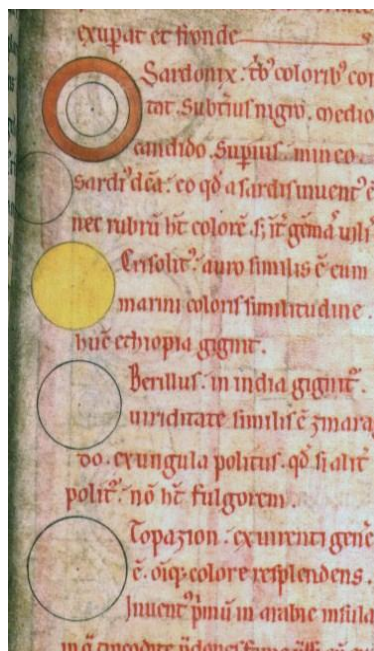 exuperat et fronde
Sardonix. tͥbꝰ coloribꝰ con
tat. Subtiꝰ nigro. medio
candido. Supiꝰ. mineo.
Sardiꝰ dc̄a. eo qd̄ a sardis inuentꝰ ē
nec rubrū ht̄ colorē. s; iͭ gēma uili
Crisolitꝰ. auro similis ē cum
marini coloris similitudine.
hūc ethiopia gignit.
Berillus. in india gignitꝰ.
uiriditate similis ē zmarag
do. ex ungula politus. qd̄ si alit̄
polit̄. nō ht̄ fulgorem.
Topazion. ex uirenti genē
ē. oīq; colore resplendens.
Inuentꝰ pͥmū in arabie insula